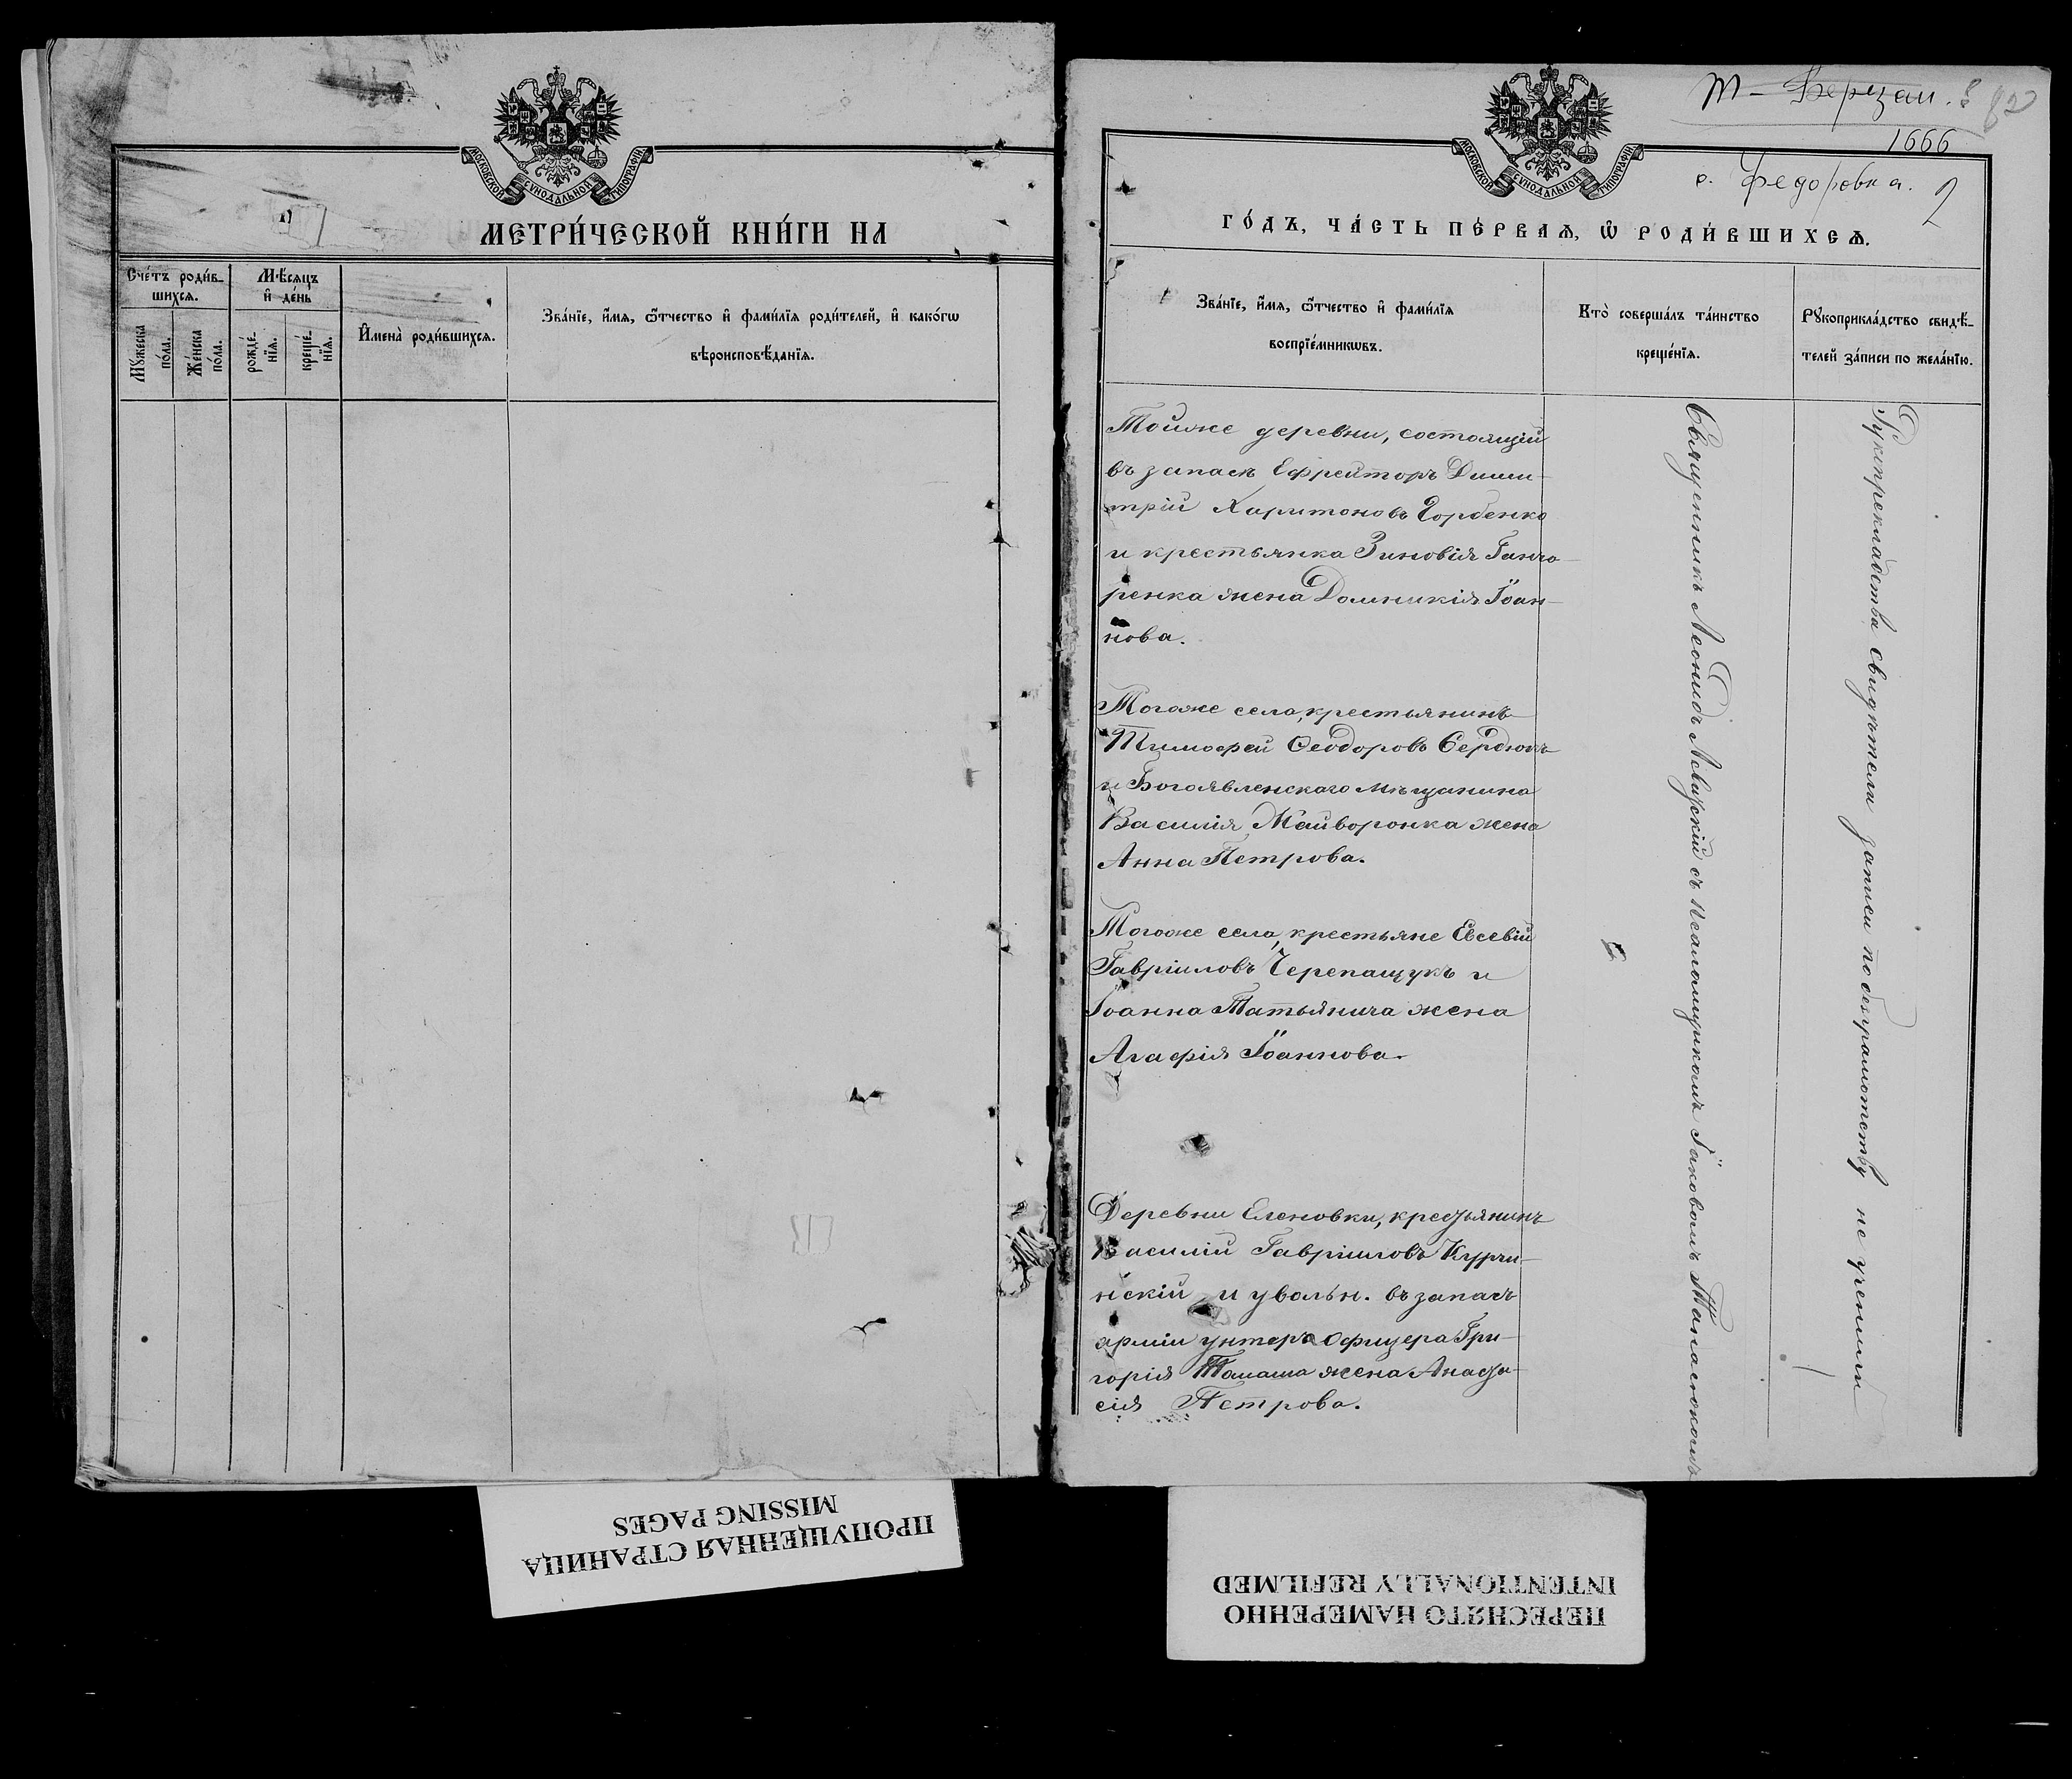 МОСКОВСКОЙ СѴНОДАЛЬНОЙ ТИПОГРАФІИ
МЕТРИ́ЧЕСКОЙ КНИ́ГИ НА
Сче́тъ роди́в-
шихсѧ.
Мѣ́сѧцъ
и҆ де́нь
Мꙋ́жеска
по́ла.
Же́нска
по́ла.
рожде́-
нїѧ.
креще́-
нїѧ.
И҆мена̀ роди́вшихсѧ.
Зва́нїе, и҆́мѧ, ѻ҆́тчество и҆ фами́лїѧ роди́телей, и҆ како́гѡ
вѣроисповѣ́данїѧ.
М - Березан. 3 82
1666
с. Федоровка. 2
МОСКОВСКОЙ СѴНОДАЛЬНОЙ ТИПОГРАФІИ
ГО́ДЪ, ЧА́СТЬ ПЕ́РВАѦ, Ѡ҆ РОДИ́ВШИХСѦ.
Зва́нїе, и҆́мѧ, ѻ҆́тчество и҆ фами́лїѧ
воспрїе́мникѡвъ.
Кто̀ соверша́лъ та́инство
креще́нїѧ.
Рꙋкоприкла́дство свидѣ́-
телей за́писи по жела́нїю.
Тойже деревни, состоящій
въ запасѣ Ефрейторъ Дими-
трій Харитоновъ Горбенко
и крестьянка Зиновія Ганча-
ренка жена Домникія Іоан-
нова.
Тогоже села, крестьянинъ
Тимофей Ѳеодоровъ Сердюкъ
и Богоявленскаго мѣщанина
Василія Майворонка жена
Анна Петрова.
Тогоже села, крестьяне Евсевій
Гавріиловъ Черепащукъ и
Іоанна Татьянича жена
Агафія Іоаннова.
Деревни Еленовки, крестьянинъ
Василій Гавріиловъ Курчи-
нскій и увольн. въ запасъ
арміи унтеръ офицера Гри-
горія Томаша жена Анаста-
сія Петрова.
Священникъ Леонидъ Левицкій съ псаломщикомъ Іаковомъ Танасюкомъ
Рукоприкладства свидѣтели записи по безграмотству не учинили
ПРОПУЩЕННАЯ СТРАНИЦА
MISSING PAGES
ПЕРЕСНЯТО НАМЕРЕННО
INTENTIONALLY REFILMED